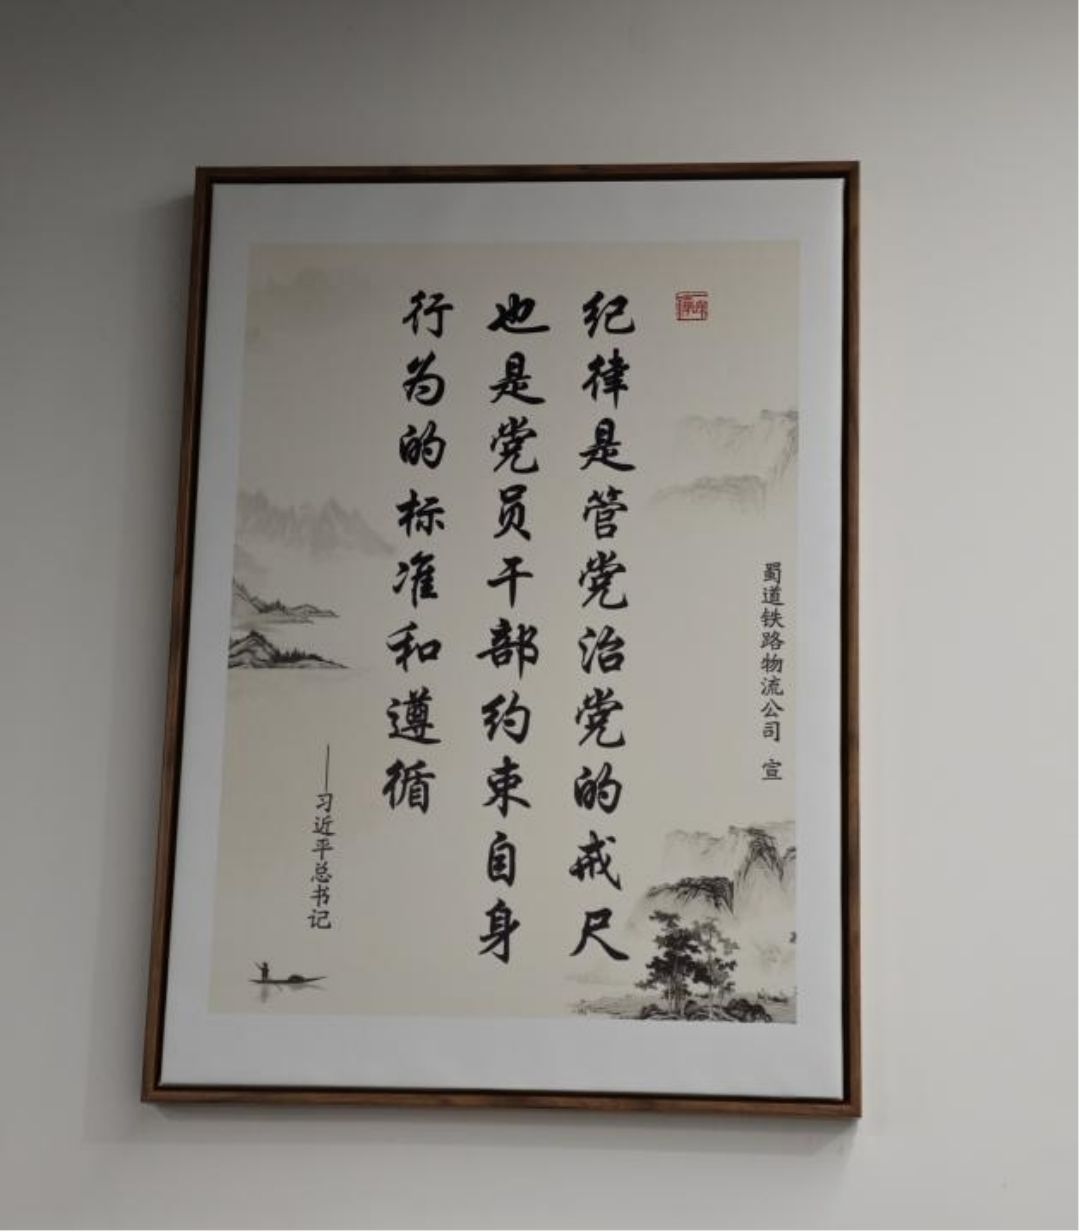 纪律是管党治党的戒尺
也是党员干部约束自身
行为的标准和遵循
——习近平总书记
蜀道铁路物流公司 宣